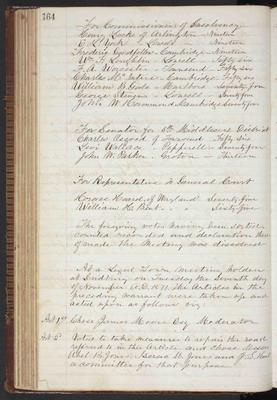 164
For Commissioner of Insolvency
Henry Locke of Arlington Nineteen
E. H. York " Lowell Nineteen
Frederic Goodfellow Cambridge Nineteen
Wm F. Loughlin Lowell Fifty six
F. A. Worcester Townsend Fifty six
Charles Mc Intire Cambridge Fifty six
William B. Gale Marlboro Seventy four
George Stevens Lowell Seventy four
John W. Hammond Cambridge Seventy four
For Senator for 5th Middlesex District
Charles Osgood of Townsend Fifty six
Levi Wallace Pepperell Seventy four
John W. Parker Groton Thirteen
For Representative to General Court
Horace Heard of Wayland Seventy five
William H. Bent " " Sixty five
The foregoing votes having been stated
counted recorded and declaration thereof
made. The Meeting was dissolved
At a Legal Town Meeting holden
at Sudbury on Tuesday the Seventh day
of November A.D. 1871. The Articles in the
preceding warrant were taken up and
acted upon as follows viz
Art 1st Chose James Moore Esq Moderator
Art 2d Voted to take measures to repair the road
referred to in the Article and chose Messrs
Abel B. Jones, Lucius W. Jones and J. S. Hunt
a committee for that purpose